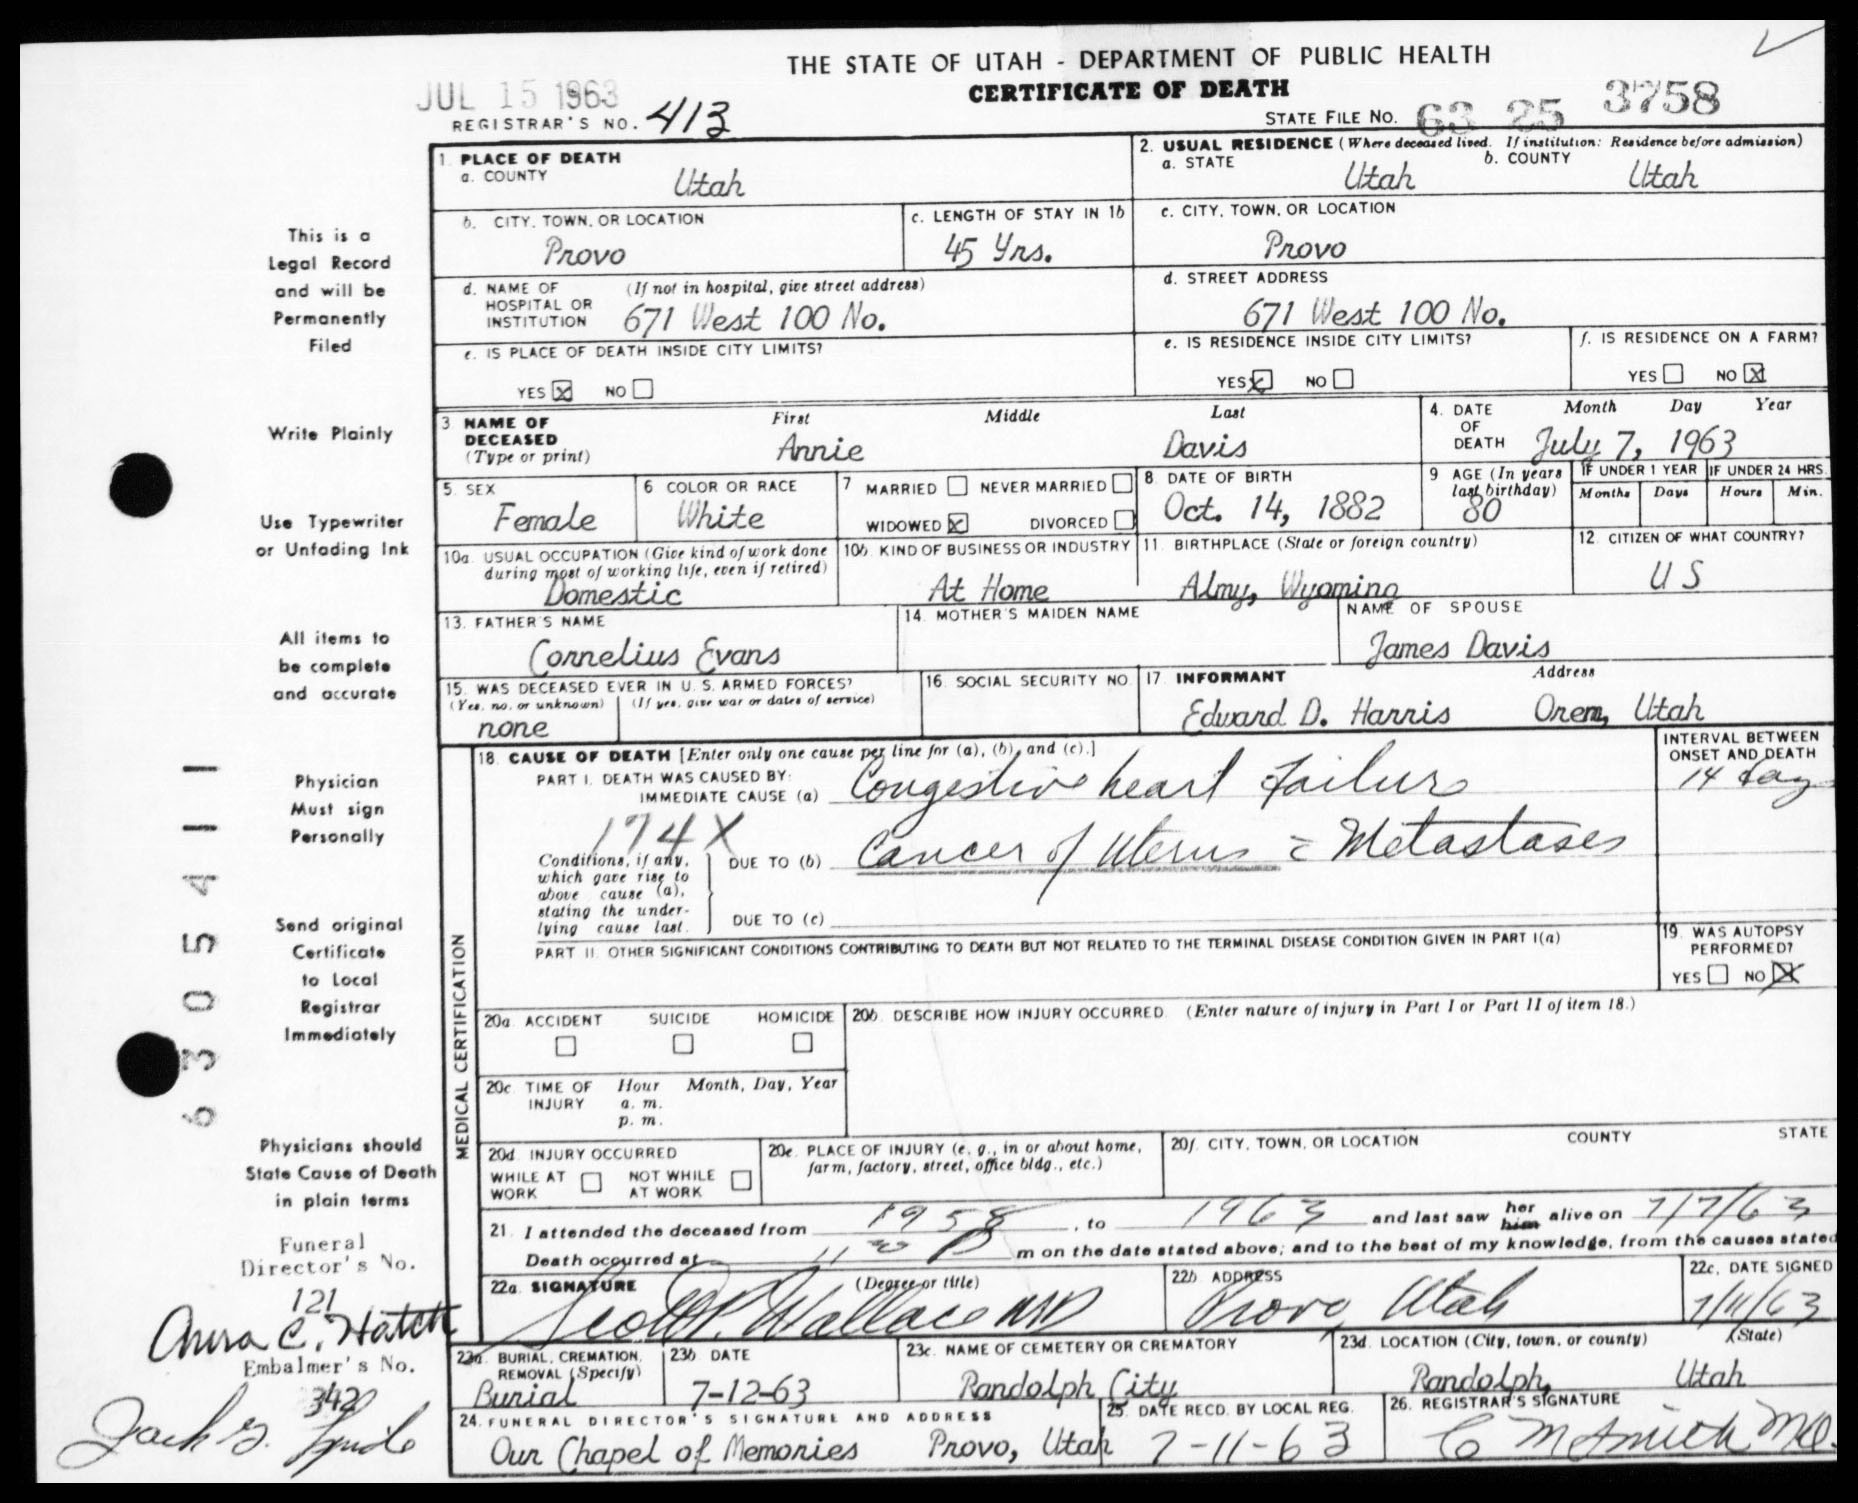 THE STATE OF UTAH - DEPARTMENT OF PUBLIC HEALTH
CERTIFICATE OF DEATH
JUL 15 1963
REGISTRAR'S NO. 413
STATE FILE NO. 63 25 3758
1. PLACE OF DEATH
a. COUNTY Utah
2. USUAL RESIDENCE (Where deceased lived. If institution: Residence before admission)
a. STATE Utah b. COUNTY Utah
b. CITY, TOWN, OR LOCATION Provo
c. LENGTH OF STAY IN 1b 45 Yrs.
c. CITY, TOWN, OR LOCATION Provo
d. NAME OF HOSPITAL OR INSTITUTION (If not in hospital, give street address) 671 West 100 No.
d. STREET ADDRESS 671 West 100 No.
e. IS PLACE OF DEATH INSIDE CITY LIMITS?
YES X NO
e. IS RESIDENCE INSIDE CITY LIMITS?
YES X NO
f. IS RESIDENCE ON A FARM?
YES NO X
3 NAME OF DECEASED (Type or print) First Middle Last
Annie Davis
4. DATE OF DEATH Month Day Year
July 7, 1963
5. SEX Female
6 COLOR OR RACE White
7 MARRIED NEVER MARRIED
WIDOWED X DIVORCED
8 DATE OF BIRTH Oct. 14, 1882
9 AGE (In years last birthday) 80
IF UNDER 1 YEAR Months Days
IF UNDER 24 HRS. Hours Min.
10a. USUAL OCCUPATION (Give kind of work done during most of working life, even if retired) Domestic
10b. KIND OF BUSINESS OR INDUSTRY At Home
11. BIRTHPLACE (State or foreign country) Almy, Wyoming
12. CITIZEN OF WHAT COUNTRY? US
13. FATHER'S NAME Cornelius Evans
14. MOTHER'S MAIDEN NAME
NAME OF SPOUSE James Davis
15. WAS DECEASED EVER IN U. S. ARMED FORCES?
(Yes, no, or unknown) (If yes, give war or dates of service)
none
16. SOCIAL SECURITY NO.
17. INFORMANT Address
Edward D. Harris Orem, Utah
MEDICAL CERTIFICATION
18. CAUSE OF DEATH [Enter only one cause per line for (a), (b), and (c).]
PART I. DEATH WAS CAUSED BY:
IMMEDIATE CAUSE (a) Congestive heart failure
INTERVAL BETWEEN ONSET AND DEATH
14 days
174X
Conditions, if any, which gave rise to above cause (a), stating the underlying cause last.
DUE TO (b) Cancer of Uterus c Metastases
DUE TO (c)
PART II. OTHER SIGNIFICANT CONDITIONS CONTRIBUTING TO DEATH BUT NOT RELATED TO THE TERMINAL DISEASE CONDITION GIVEN IN PART I(a)
19. WAS AUTOPSY PERFORMED?
YES NO X
20a. ACCIDENT SUICIDE HOMICIDE
20b. DESCRIBE HOW INJURY OCCURRED. (Enter nature of injury in Part I or Part II of item 18.)
20c. TIME OF INJURY Hour Month, Day, Year
a. m.
p. m.
20d. INJURY OCCURRED
WHILE AT WORK NOT WHILE AT WORK
20e. PLACE OF INJURY (e. g., in or about home, farm, factory, street, office bldg., etc.)
20f. CITY, TOWN, OR LOCATION COUNTY STATE
21. I attended the deceased from 1958, to 1963 and last saw her him alive on 7/7/63
Death occurred at 11 30 P m on the date stated above; and to the best of my knowledge, from the causes stated
22a. SIGNATURE (Degree or title)
Scott P. Wallace MD
22b. ADDRESS Provo, Utah
22c. DATE SIGNED 7/11/63
23a. BURIAL, CREMATION, REMOVAL (Specify) Burial
23b DATE 7-12-63
23c. NAME OF CEMETERY OR CREMATORY Randolph City
23d. LOCATION (City, town, or county) (State)
Randolph, Utah
24. FUNERAL DIRECTOR'S SIGNATURE AND ADDRESS
Our Chapel of Memories Provo, Utah
25. DATE RECD. BY LOCAL REG. 7-11-63
26. REGISTRAR'S SIGNATURE
C M Smith MD.
This is a
Legal Record
and will be
Permanently
Filed
Write Plainly
Use Typewriter
or Unfading Ink
All items to
be complete
and accurate
Physician
Must sign
Personally
Send original
Certificate
to Local
Registrar
Immediately
Physicians should
State Cause of Death
in plain terms
Funeral
Director's No.
121
C. Hatch
Embalmer's No.
342
Jack G.
63054